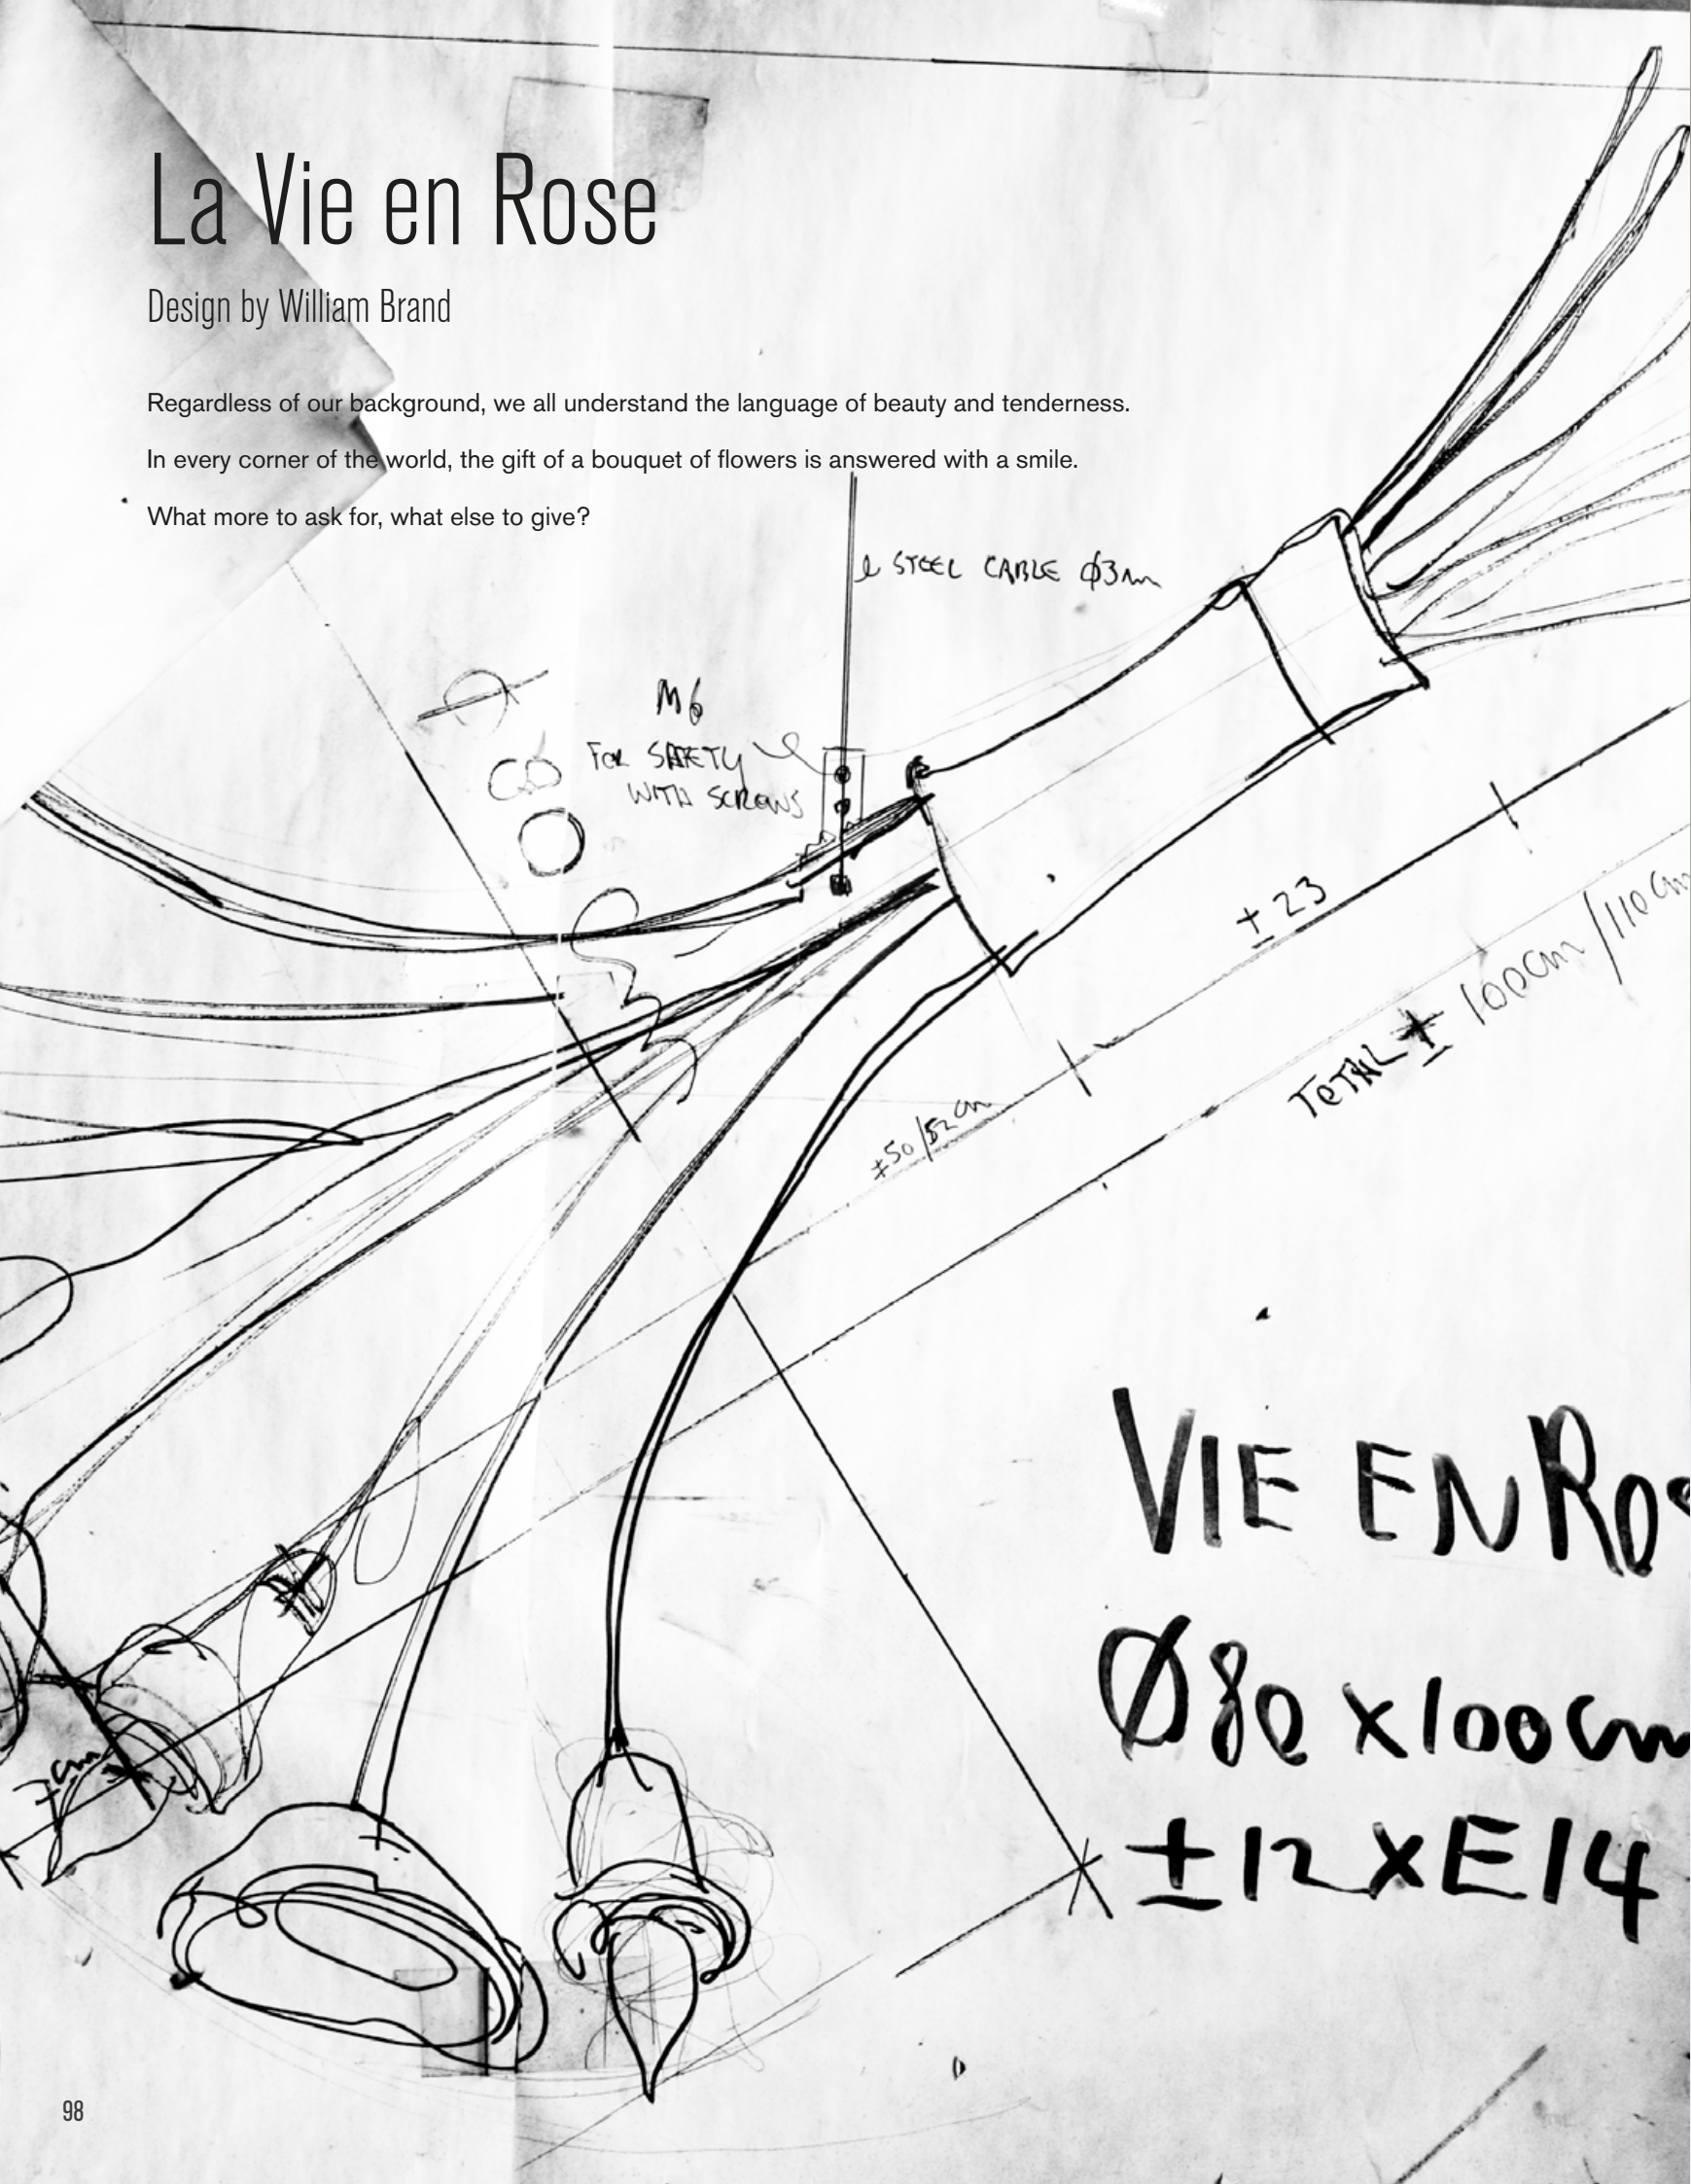 La Vie en Rose
Design by William Brand
Regardless of our background, we all understand the language of beauty and tenderness.
In every corner of the world, the gift of a bouquet of flowers is answered with a smile.
What more to ask for, what else to give?
STEEL CABLE Ø3
M6
FOR SAFETY
WITH SCREWS
± 23
TOTAL ± 100cm/110cm
±50/52 cm
VIE EN ROS
Ø80 x 100 cm
±12 x E14
7cm
98